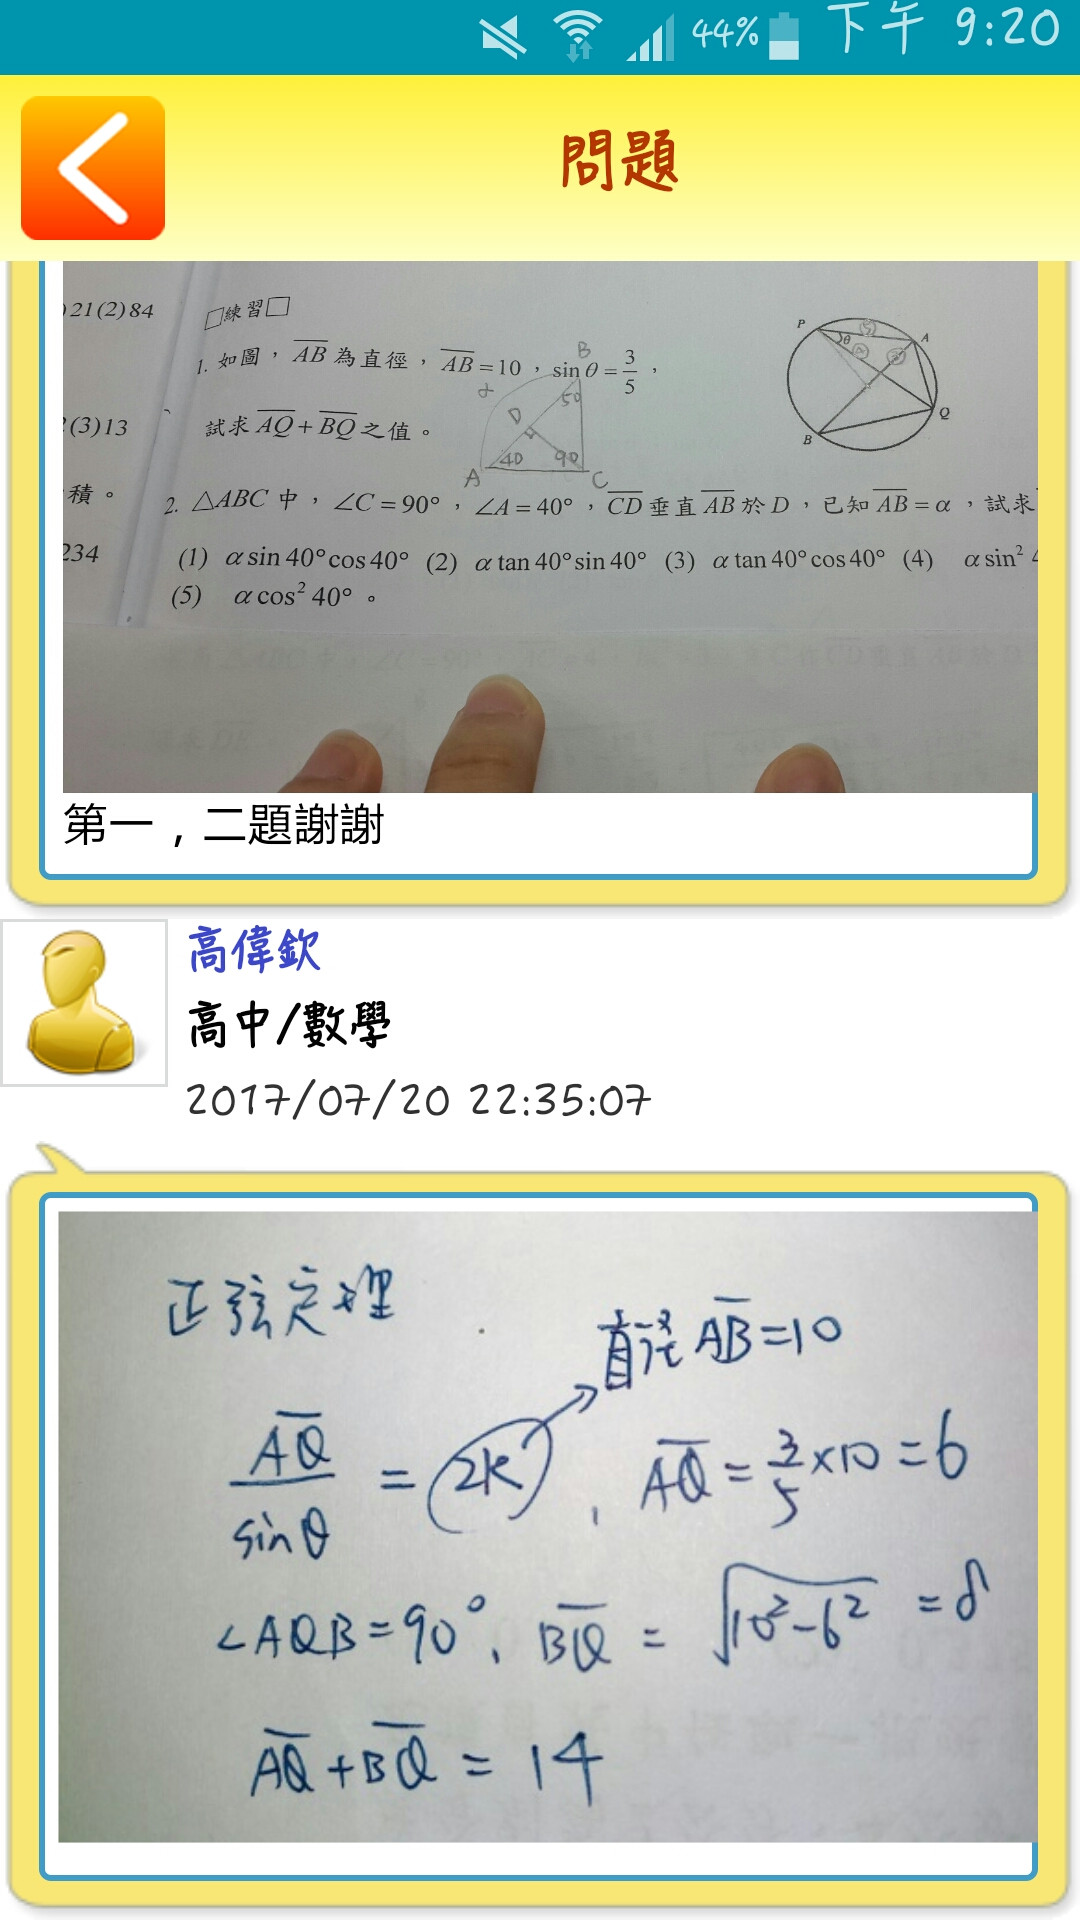 44% 下午 9:20
問題
)21(2)84
□練習□
1. 如圖，AB 為直徑，AB = 10，sin θ = 3/5，
(3)13
試求 AQ + BQ 之值。
P
A
θ
B
Q
B
α
D
50
A
40
90
C
積。
2. △ABC 中，∠C = 90°，∠A = 40°，CD 垂直 AB 於 D，已知 AB = α，試求
234
(1) α sin 40° cos 40° (2) α tan 40° sin 40° (3) α tan 40° cos 40° (4) α sin²
(5) α cos² 40°。
第一，二題謝謝
高偉欽
高中/數學
2017/07/20 22:35:07
正弦定理
直徑 AB=10
AQ/sinθ = 2R, AQ = 3/5 ×10 = 6
∠AQB=90°, BQ = √10²-6² = 8
AQ+BQ = 14